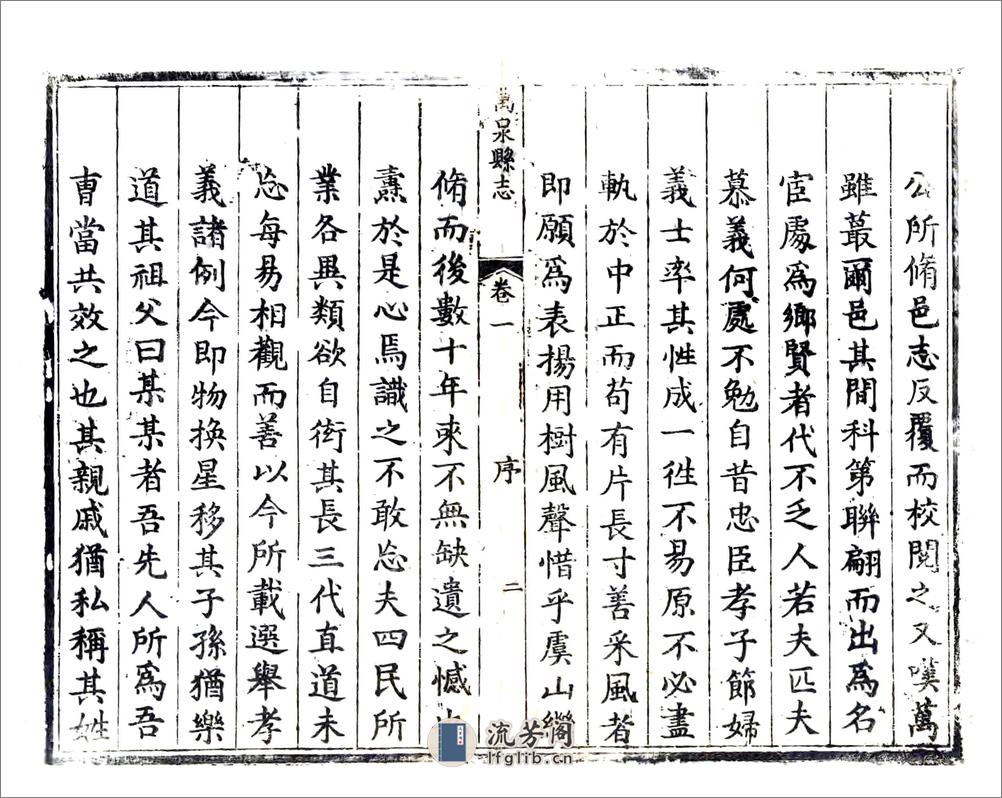 公所脩邑志反覆而校閱之又嘆萬
雖蕞爾邑其間科第聯翩而出爲名
宦處爲鄉賢者代不乏人若夫匹夫
慕義何處不勉自昔忠臣孝子節婦
義士率其性成一徃不易原不必盡
軌於中正而苟有片長寸善采風者
即願爲表揚用樹風聲惜乎虞山纘
萬泉縣志
卷一
序
二
脩而後數十年來不無缺遺之憾
燾於是心焉識之不敢忘夫四民所
業各異類欲自衒其長三代直道未
忘每易相觀而善以今所載選舉孝
義諸例今即物換星移其子孫猶樂
道其祖父曰某某者吾先人所爲吾
曹當共效之也其親戚猶私稱其姓
流芳閣
lfglib.cn